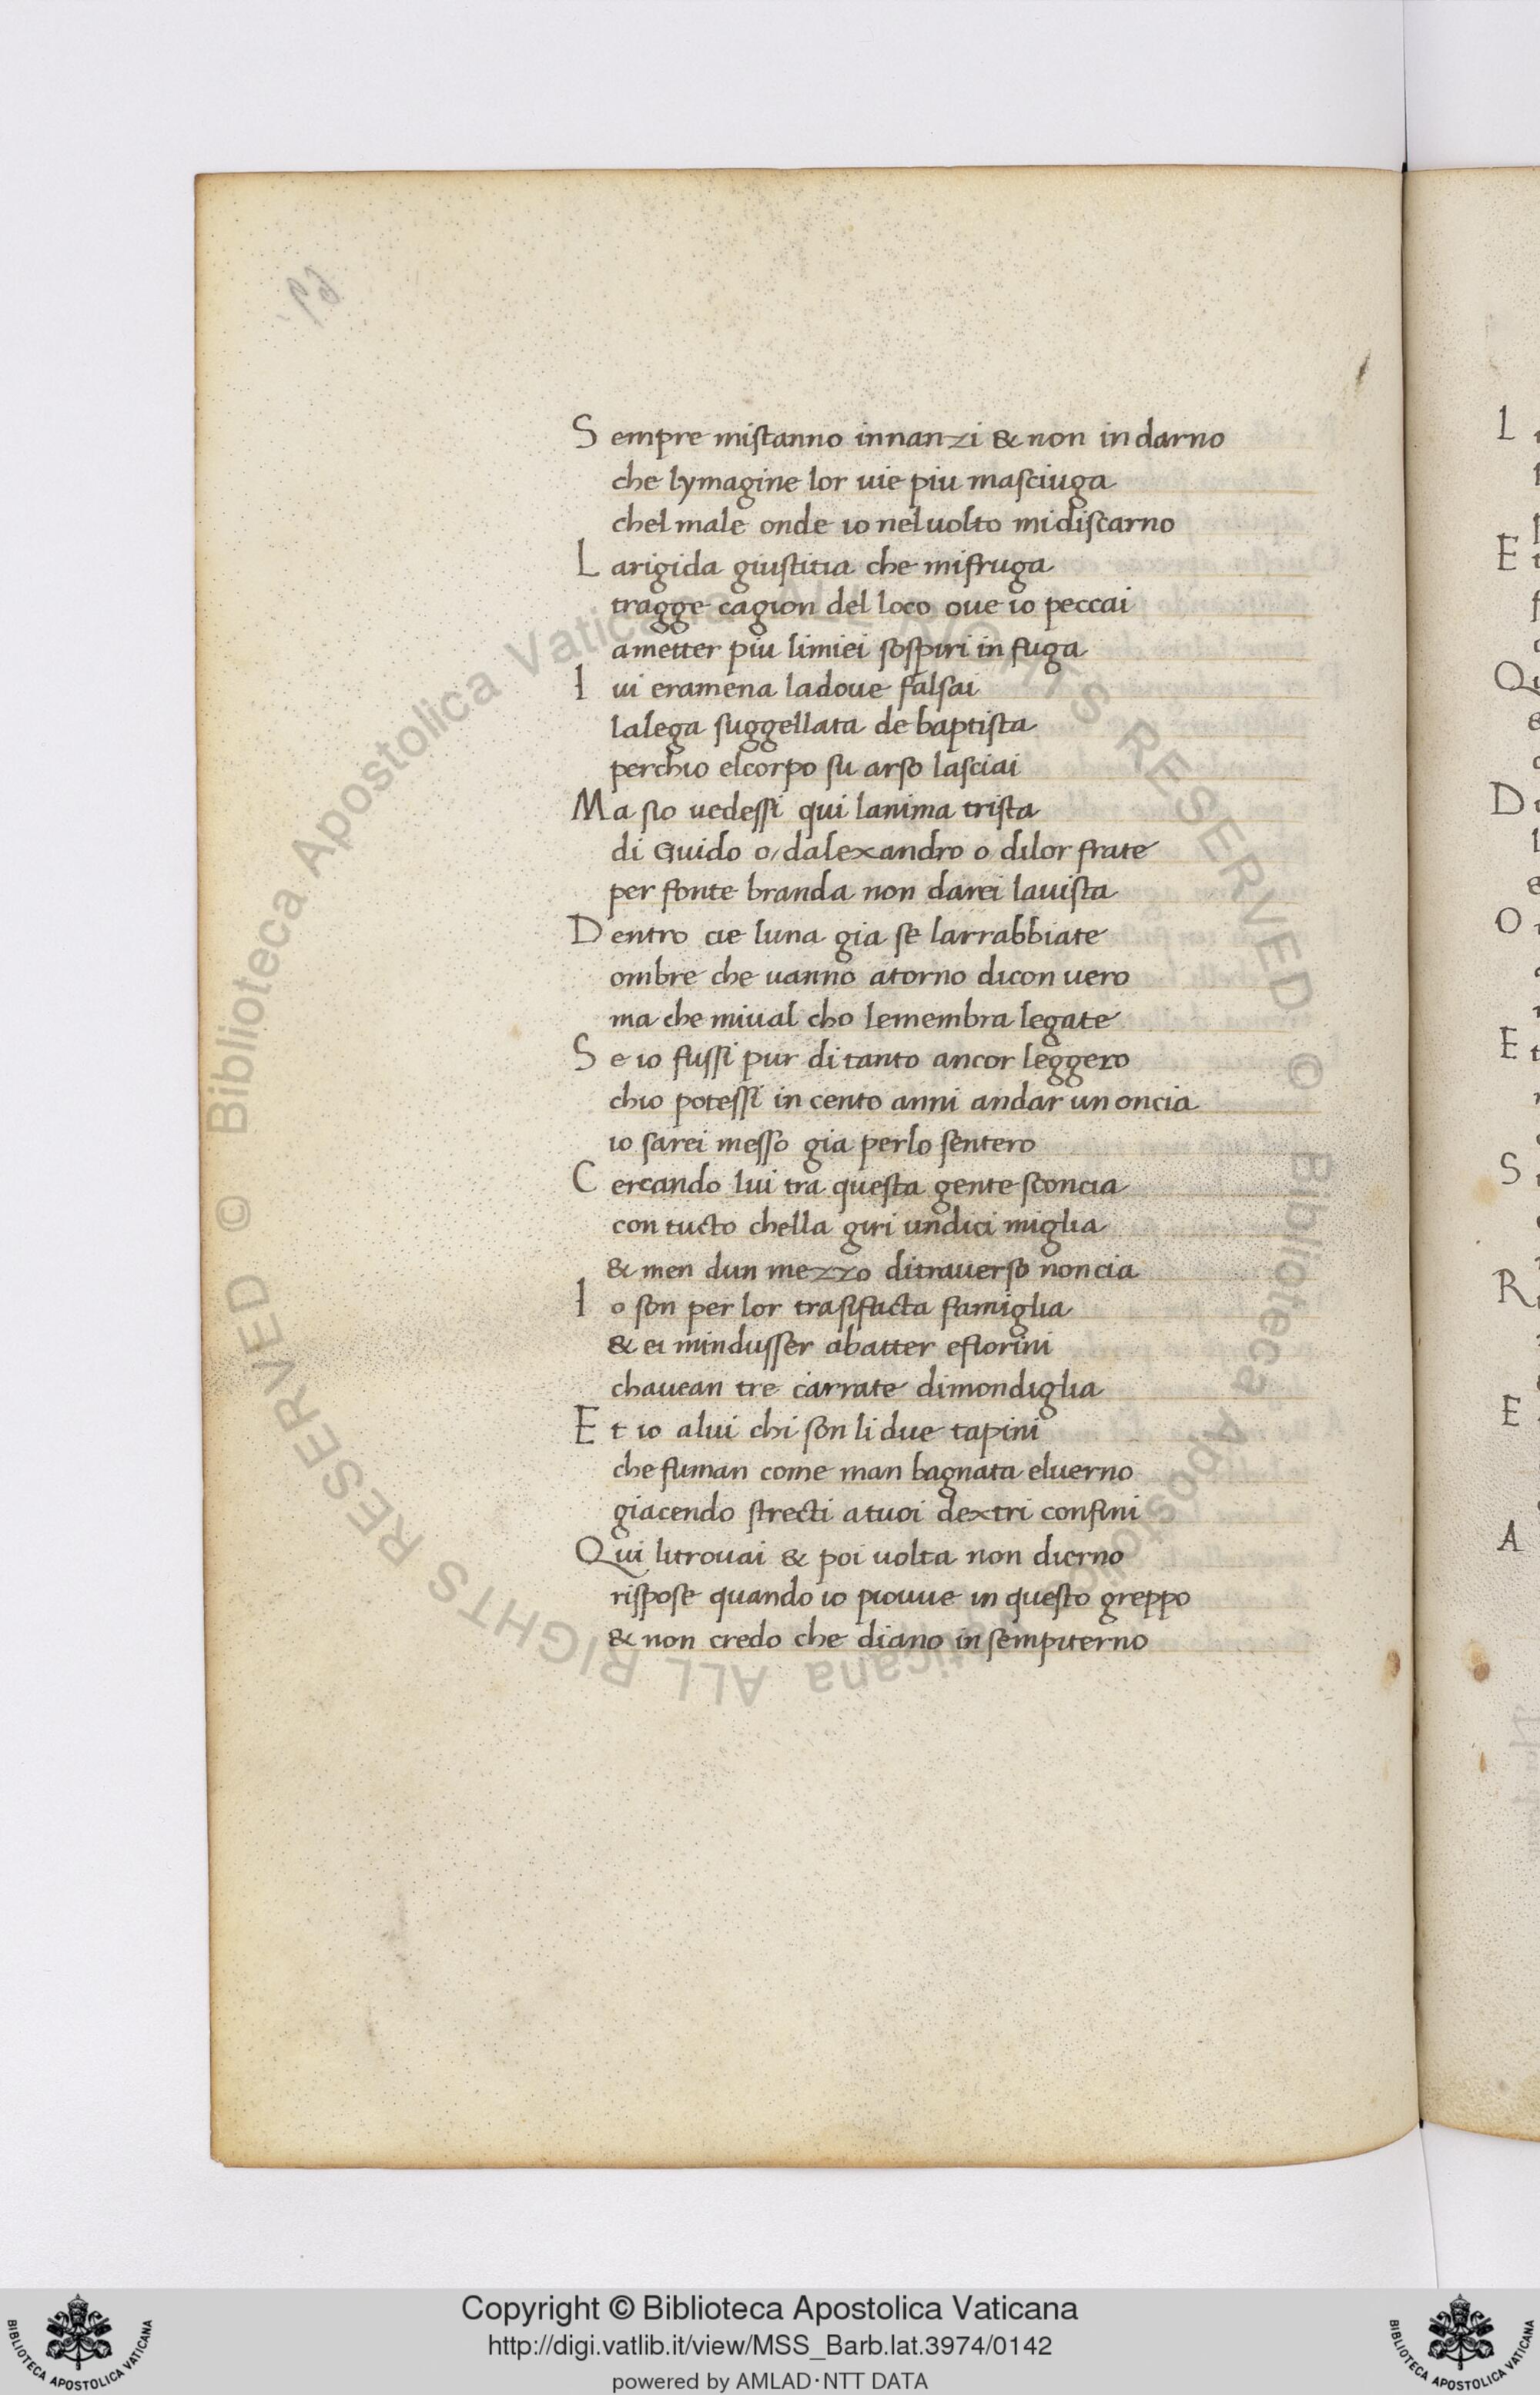 Sempre mistanno innanzi & non indarno
che lymagine lor uie piu masciuga
chel male onde io neluolto midiscarno
Larigida giustitia che mifruga
tragge cagion del loco oue io peccai
ametter piu limiei sospiri in fuga
Iui eramena ladoue falsai
lalega suggellata de baptista
perchio elcorpo su arso lasciai
Ma sio uedessi qui lanima trista
di Guido o/ dalexandro o dilor frate
per fonte branda non darei lauista
Dentro cie luna gia se larrabbiate
ombre che uanno atorno dicon uero
ma che miual cho lemembra legate
Se io fussi pur di tanto ancor leggero
chio potessi in cento anni andar un oncia
io sarei messo gia perlo sentero
Cercando lui tra questa gente sconcia
con tucto chella giri undici miglia
& men dun mezzo ditrauerso noncia
Io son per lor trasifacta famiglia
& ei mindusser abatter efiorini
chauean tre carrate dimondiglia
Et io alui chi son li due tapini
che fuman come man bagnata eluerno
giacendo strecti atuoi dextri confini
Qui litrouai & poi uolta non dierno
rispose quando io piouue in questo greppo
& non credo che diano in sempiterno
L
E
Qu
D
O
E
S
R
E
A
© Biblioteca Apostolica Vaticana ALL RIGHTS RESERVED
© Biblioteca Apostolica Vaticana ALL RIGHTS RESERVED
Copyright © Biblioteca Apostolica Vaticana
http://digi.vatlib.it/view/MSS_Barb.lat.3974/0142
powered by AMLAD·NTT DATA
BIBLIOTECA APOSTOLICA VATICANA
BIBLIOTECA APOSTOLICA VATICANA